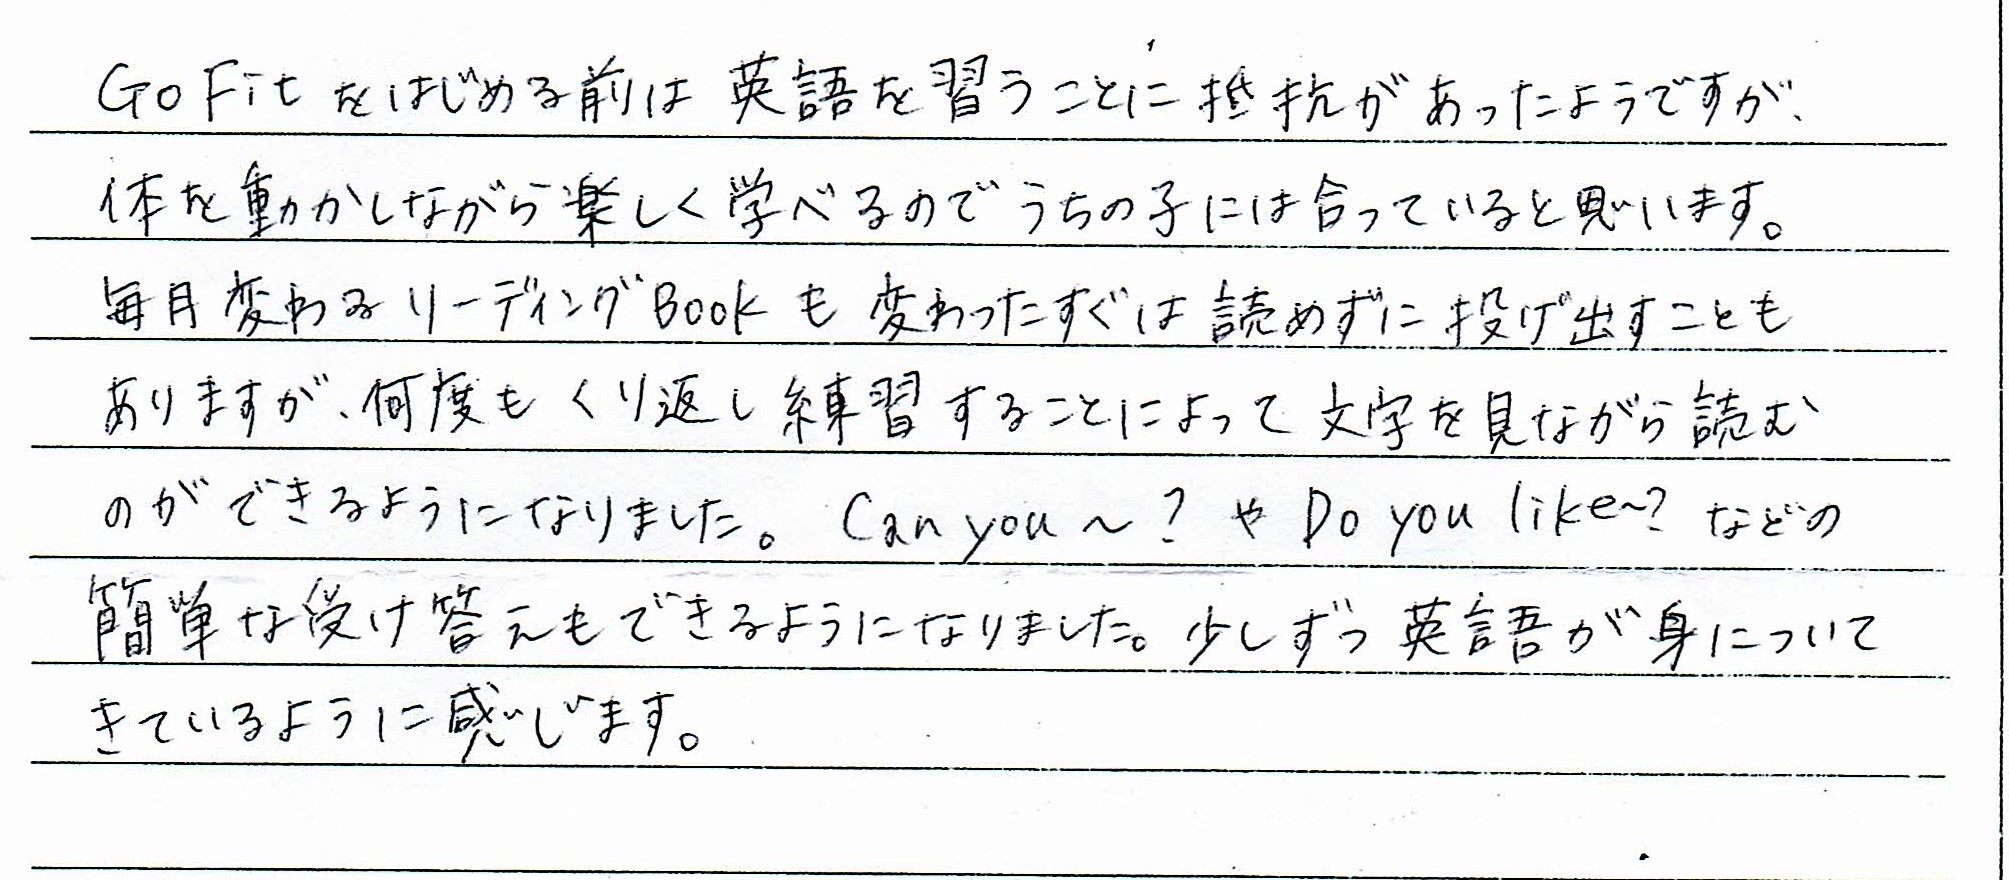 Go Fit をはじめる前は 英語を習うことに 抵抗があったようですが、
体を動かしながら楽しく学べるのでうちの子には合っていると思います。
毎月変わるリーディングBookも変わったすぐは読めずに投げ出すことも
ありますが、何度もくり返し練習することによって文字を見ながら読む
のができるようになりました。 Can you ～？ や Do you like～？ などの
簡単な受け答えもできるようになりました。少しずつ英語が身について
きているように感じます。